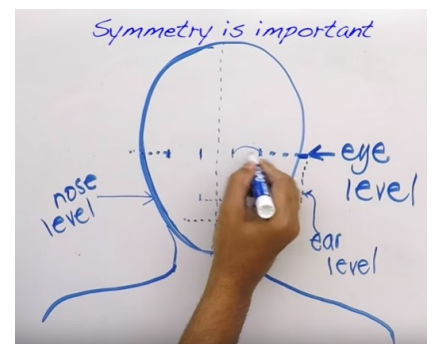 Symmetry is important
eye
level
nose
level
ear
level